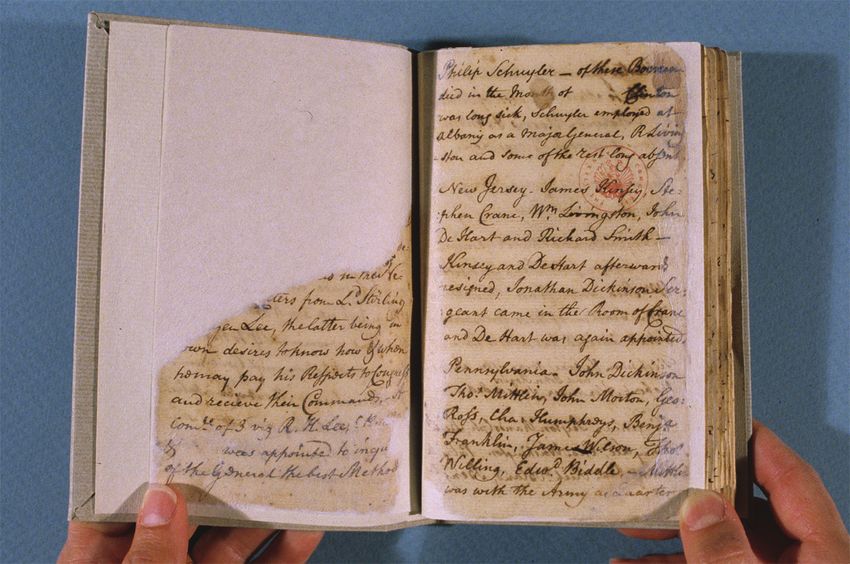 is in the Ne-
ters from Ld. Stirling
Gen Lee, the latter being in
own desires to know how & when
he may pay his Respects to Congress
and recieve their Commands,
comee. of 3 viz R. H. Lee,
was appointed to inqu
of the General the best Method
Philip Schuyler — of these Boerum
died in the Month of Clinton
was long sick, Schuyler employed at
Albany as a Major General, R Livin
ston and some of the rest long absent
New Jersey - James Kinsey, Ste-
phen Crane, Wm Livingston, John
De Hart and Richard Smith —
Kinsey and De Hart afterwards
resigned, Jonathan Dickinson Ser-
geant came in the Room of Crane
and De Hart was again appointed
Pennsylvania - John Dickinson
Thos. Mifflin, John Morton, Geo-
Ross, Cha. Humphreys, Benja
Franklin, James Wilson, Thos.
Willing, Edwd. Biddle — Mifflin
was with the Army as Quarter